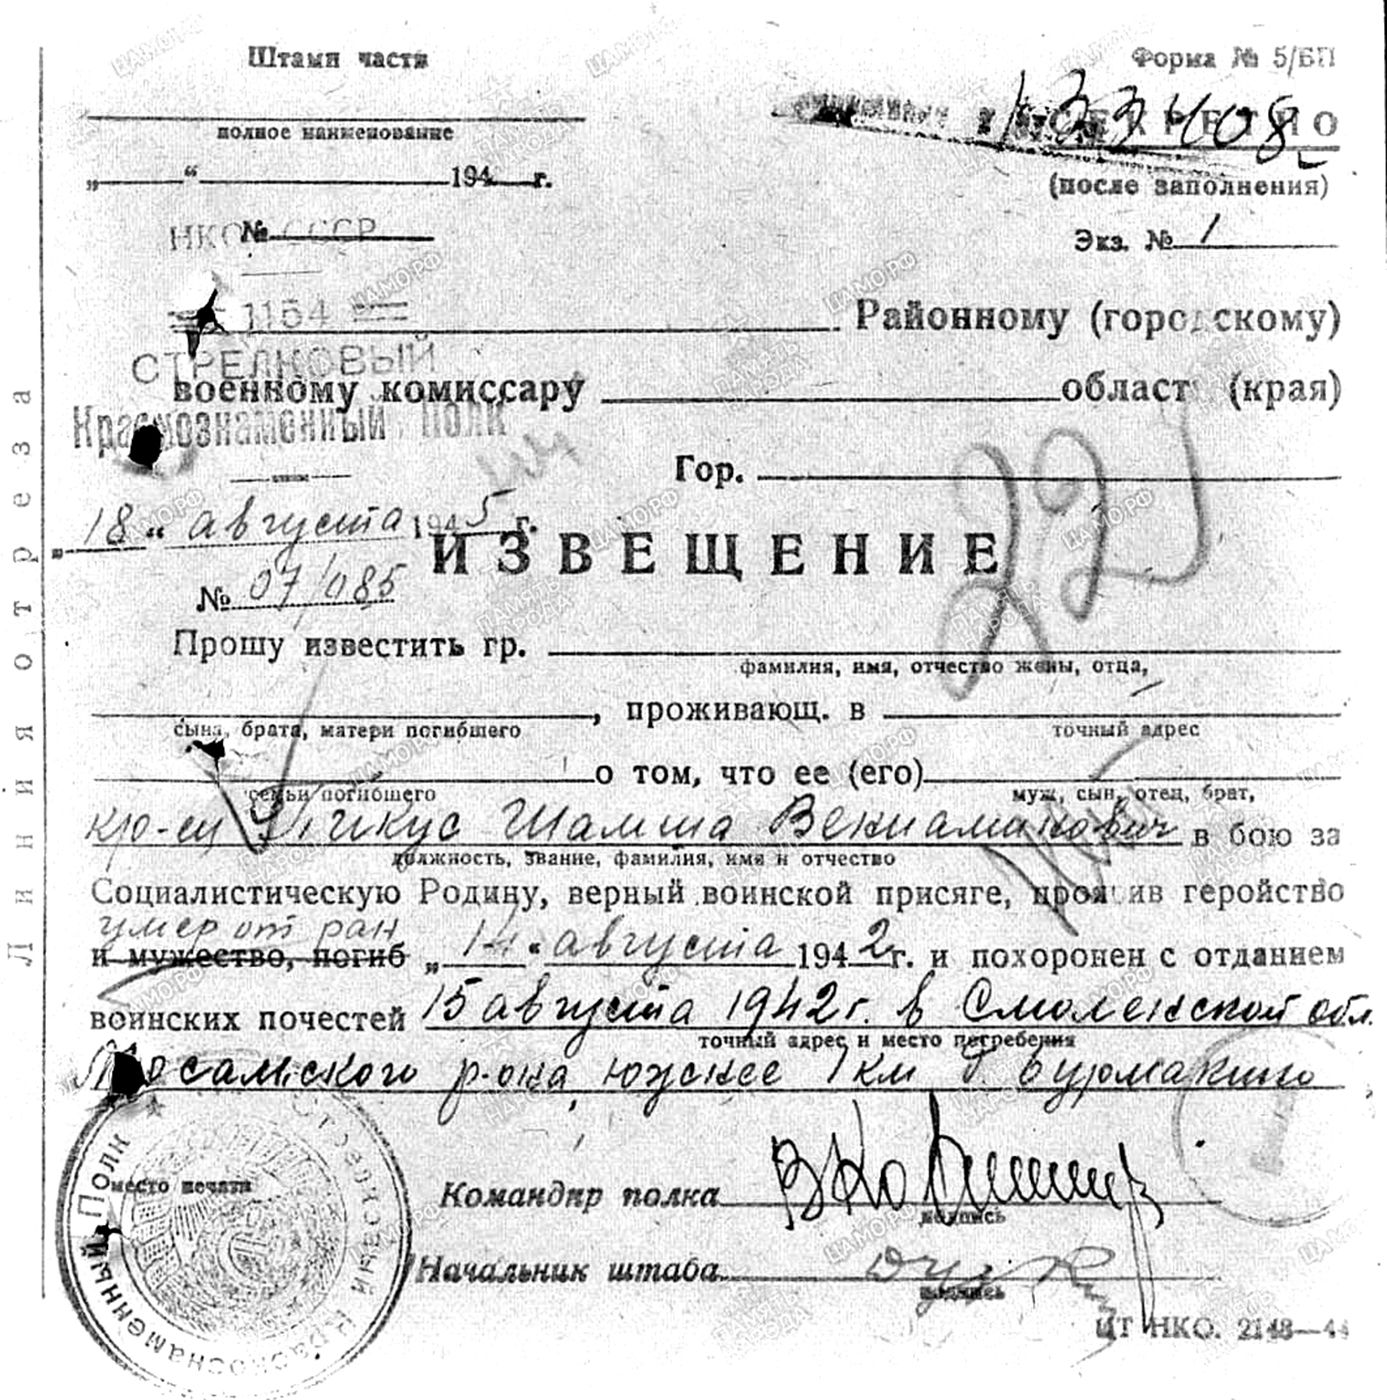 Штамп части
Форма № 5/БП
полное наименование
133408
СЕКРЕТНО
„ “ 194 г.
(после заполнения)
№
НКО СССР
Экз. № 1
1154
Районному (городскому)
СТРЕЛКОВЫЙ
военному комиссару области (края)
Краснознаменный полк
Гор.
„18“ августа 1945 г.
ИЗВЕЩЕНИЕ
№ 07/085
Прошу известить гр.
фамилия, имя, отчество жены, отца,
, проживающ. в
сына, брата, матери погибшего
точный адрес
о том, что ее (его)
семьи погибшего
муж, сын, отец, брат,
кр-ец Шамша Вениаминович в бою за
должность, звание, фамилия, имя и отчество
Социалистическую Родину, верный воинской присяге, проявив геройство
умер от ран
и мужество, погиб „14“ августа 1942 г. и похоронен с отданием
воинских почестей 15 августа 1942 г. в Смоленской обл.
точный адрес и место погребения
Мосальского р-она, южнее 1 км д. Бурмакино
место печати
Стрелковый Краснознаменный Полк
Командир полка
подпись
Начальник штаба
подпись
ЦТ НКО. 2148—44
Линия отреза
ЦАМО.РФ
ПАМЯТЬ НАРОДА